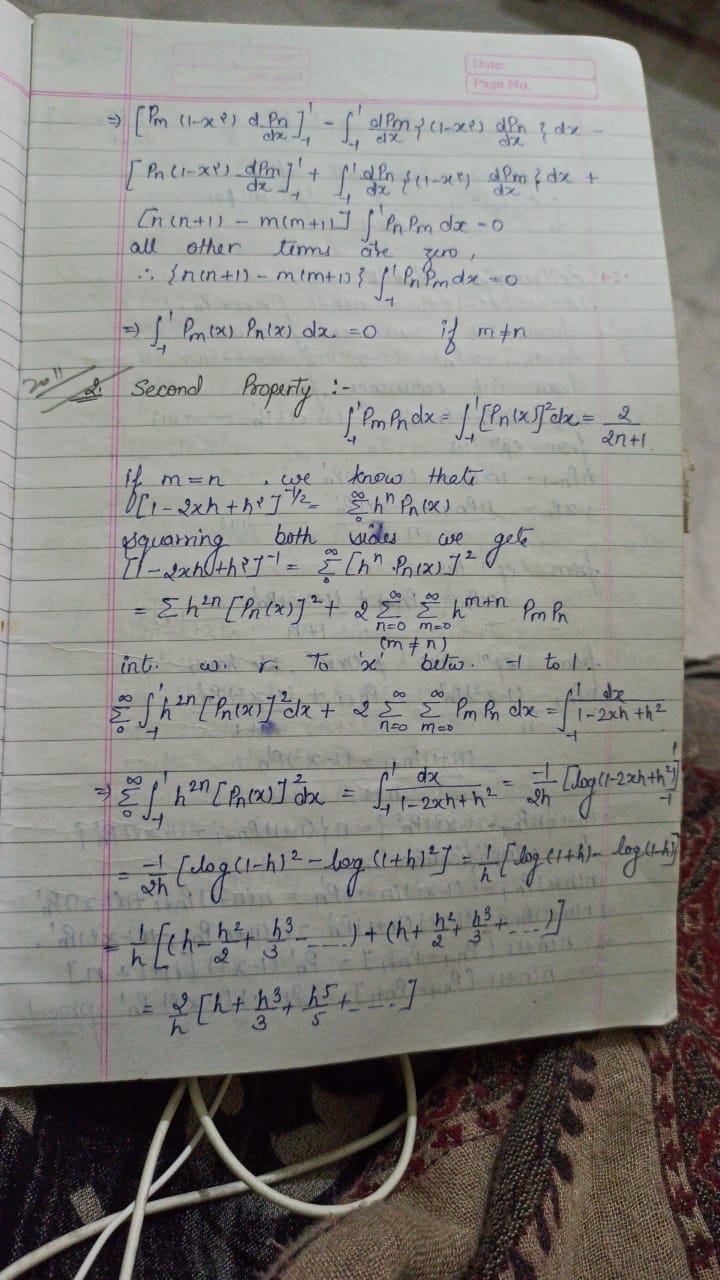 Date:
Page No.
⇒ [Pm (1-x²) dPn/dx]₋₁¹ - ∫₋₁¹ dPm/dx {(1-x²) dPn/dx} dx -
[Pn(1-x²) dPm/dx]₋₁¹ + ∫₋₁¹ dPn/dx {(1-x²) dPm/dx} dx +
[n(n+1) - m(m+1)] ∫₋₁¹ Pn Pm dx = 0
all other terms are zero,
∴ {n(n+1) - m(m+1)} ∫₋₁¹ PnPm dx = 0
⇒ ∫₋₁¹ Pm(x) Pn(x) dx = 0 if m≠n
2011
2. Second Property :-
∫₋₁¹ PmPn dx = ∫₋₁¹ [Pn(x)]² dx = 2/2n+1
if m=n , we know that
[1-2xh+h²]^-1/2 = Σ₀^∞ hⁿ Pn(x)
squarring both sides we get
[1-2xh+h²]⁻¹ = Σ₀^∞ [hⁿ.Pn(x)]²
= Σ h²ⁿ [Pn(x)]² + 2 Σ_{n=0}^∞ Σ_{m=0}^∞ h^{m+n} Pm Pn
(m≠n)
int. w. r. To 'x' betw. -1 to 1.
Σ₀^∞ ∫₋₁¹ h²ⁿ [Pn(x)]² dx + 2 Σ_{n=0}^∞ Σ_{m=0}^∞ Pm Pn dx = ∫₋₁¹ dx/1-2xh+h²
⇒ Σ₀^∞ ∫₋₁¹ h²ⁿ [Pn(x)]² dx = ∫₋₁¹ dx/1-2xh+h² = -1/2h [log(1-2xh+h²)]₋₁¹
= -1/2h [log(1-h)² - log(1+h)²] = 1/h [log(1+h) - log(1-h)]
= 1/h [(h - h²/2 + h³/3 - ....) + (h + h²/2 + h³/3 + ...)]
= 2/h [h + h³/3 + h⁵/5 + ....]